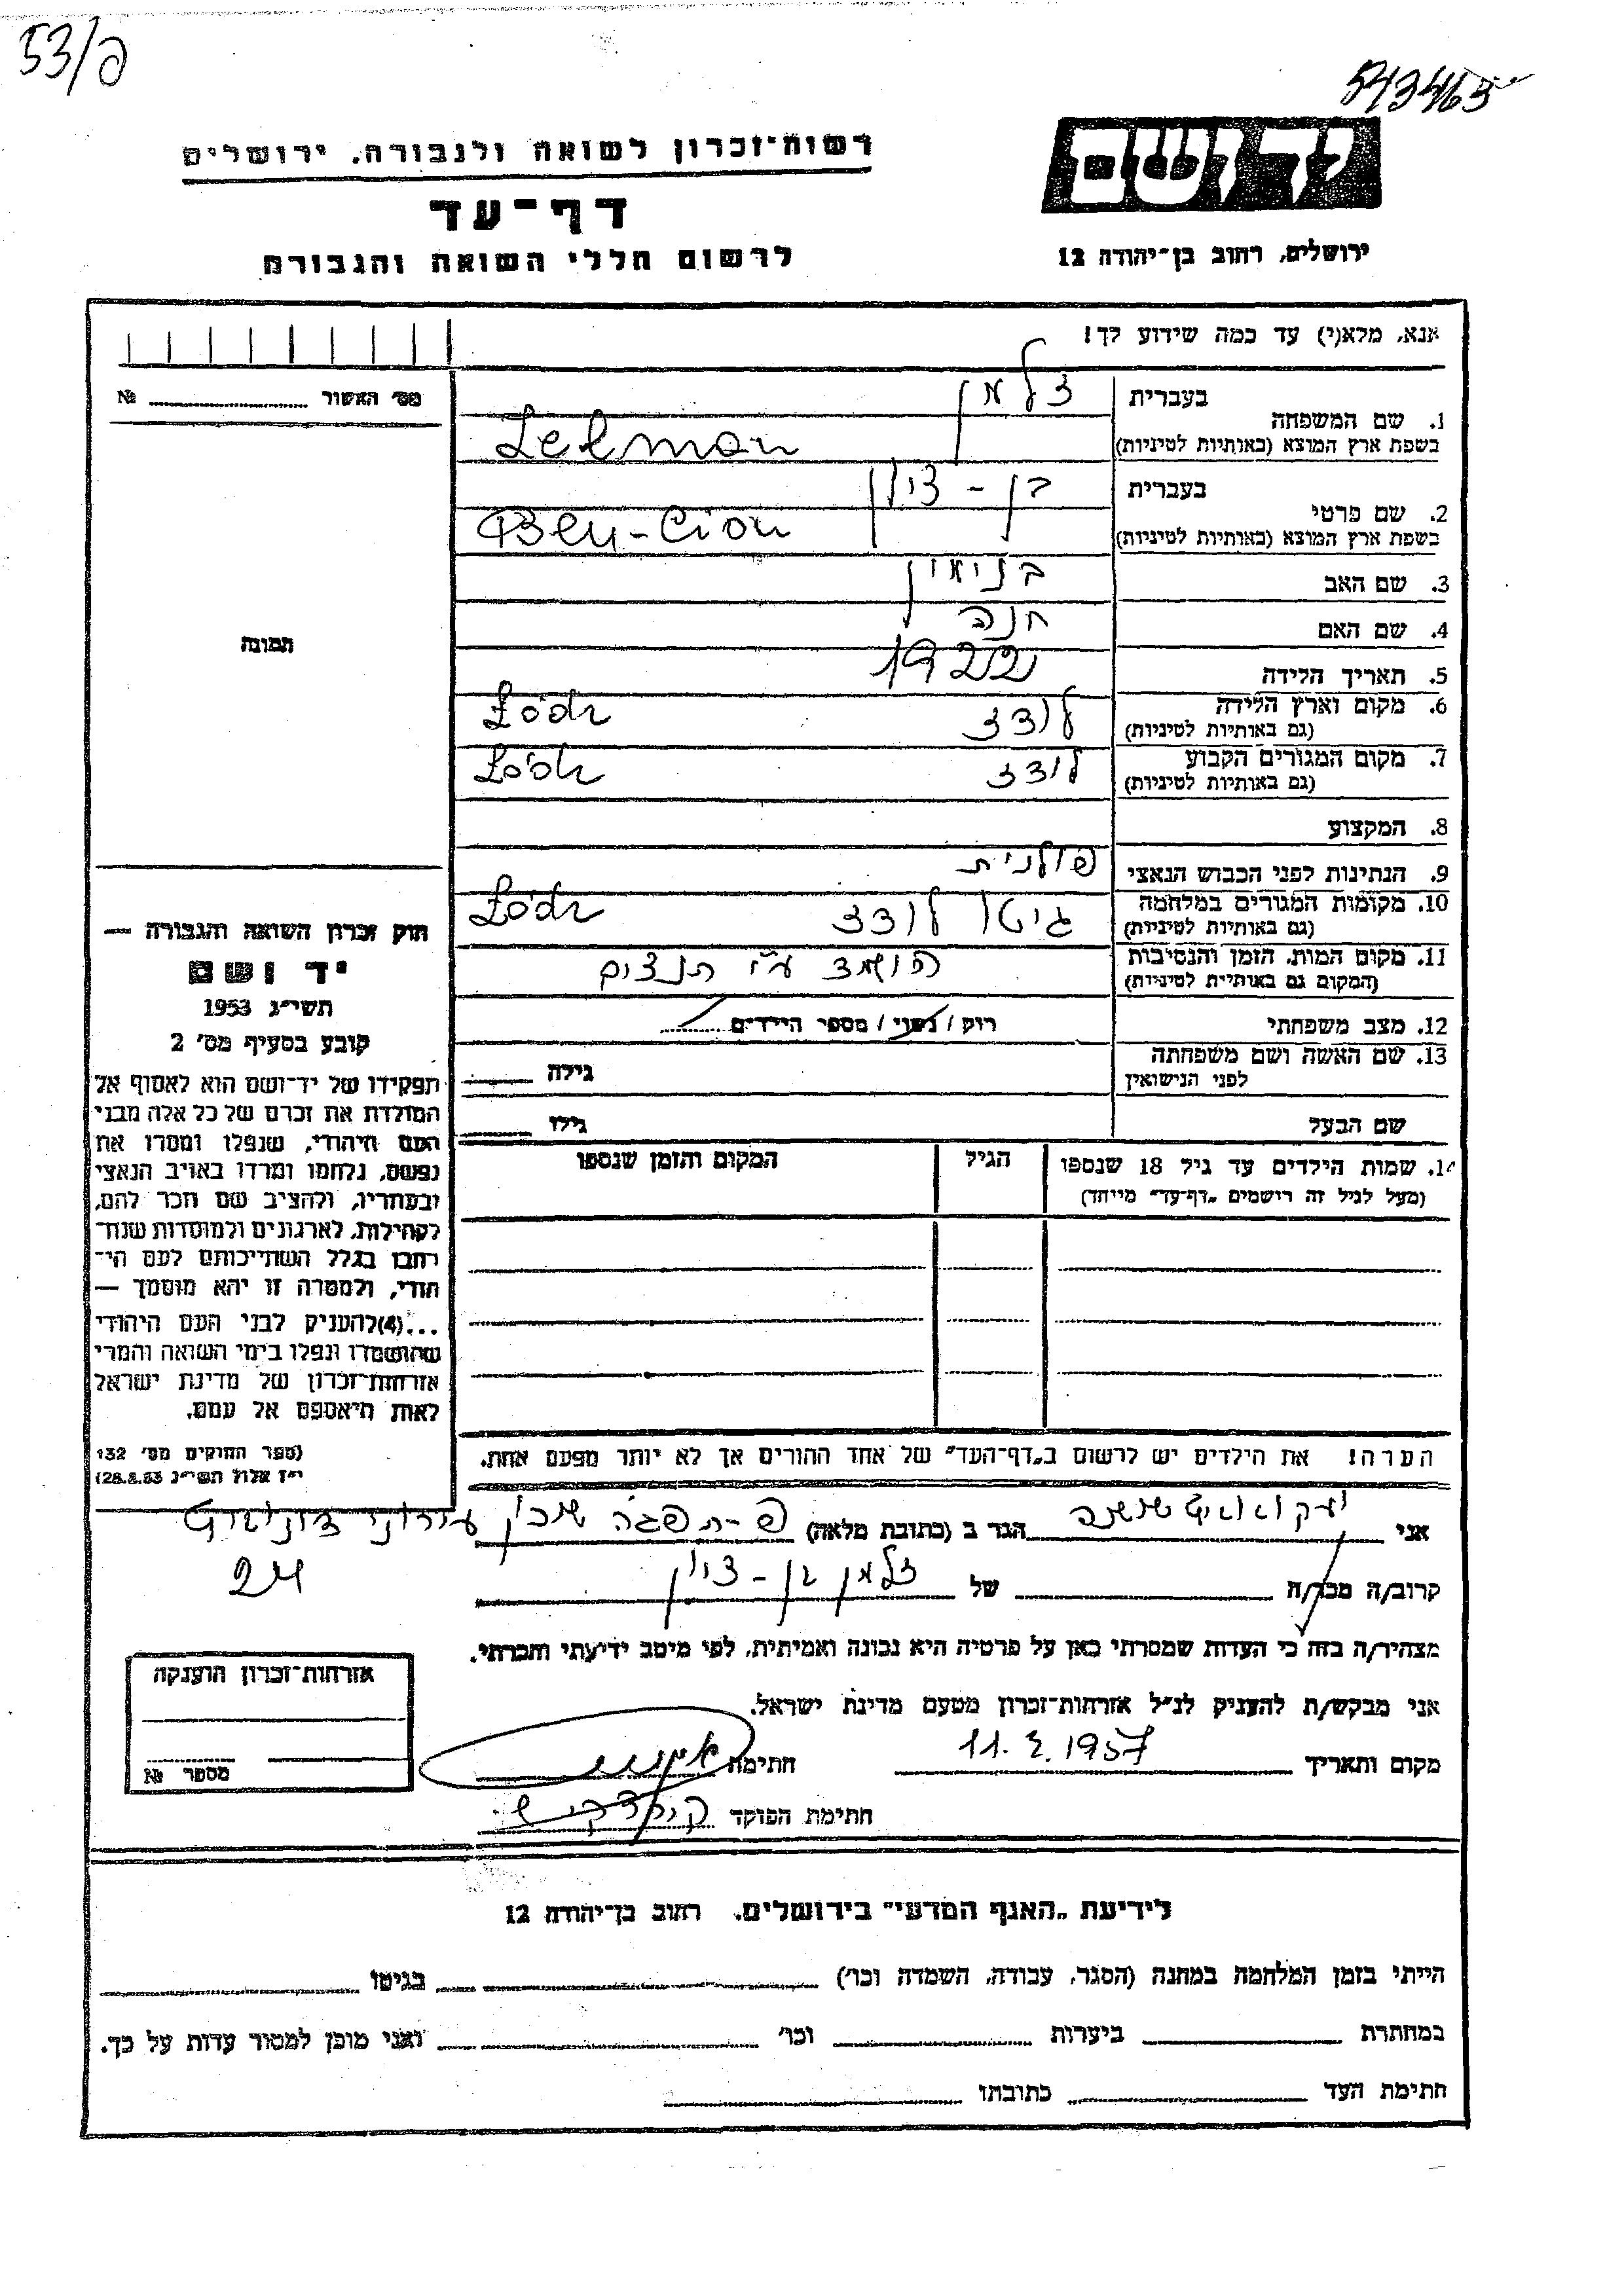 53/פ
543465
רשות-זכרון לשואה ולגבורה, ירושלים
יד ושם
דף-עד
לרשום חללי השואה והגבורה
ירושלים, רחוב בן-יהודה 12
אנא, מלא(י) עד כמה שידוע לך!
מס׳ האשור № 
1. שם המשפחה
בעברית זלמן
בשפת ארץ המוצא (באותיות לטיניות) Zelman
2. שם פרטי
בעברית בן-ציון
בשפת ארץ המוצא (באותיות לטיניות) Ben-Cion
3. שם האב בנימין
4. שם האם חנה
5. תאריך הלידה 1922
6. מקום וארץ הלידה לודז Łódz
(גם באותיות לטיניות)
7. מקום המגורים הקבוע לודז Łódz
(גם באותיות לטיניות)
8. המקצוע
9. הנתינות לפני הכבוש הנאצי פולנית
10. מקומות המגורים במלחמה גיטו לודז Łódz
(גם באותיות לטיניות)
11. מקום המות, הזמן והנסיבות הושמד ע״י הנצים
(המקום גם באותיות לטיניות)
12. מצב משפחתי רוק / נשוי / מספר הילדים
13. שם האשה ושם משפחתה
לפני הנישואין גילה
שם הבעל גילו
14. שמות הילדים עד גיל 18 שנספו הגיל המקום והזמן שנספו
(מעל לגיל זה רושמים „דף-עד״ מיוחד)
הערה! את הילדים יש לרשום ב„דף-העד״ של אחד ההורים אך לא יותר מפעם אחת.
תמונה
חוק זכרון השואה והגבורה —
יד ושם
תשי״ג 1953
קובע בסעיף מס׳ 2
תפקידו של יד-ושם הוא לאסוף אל
המולדת את זכרם של כל אלה מבני
העם היהודי, שנפלו ומסרו את
נפשם, נלחמו ומרדו באויב הנאצי
ובעוזריו, ולהציב שם וזכר להם,
לקהילות, לארגונים ולמוסדות שנח-
רבו בגלל השתייכותם לעם הי-
הודי, ולמטרה זו יהא מוסמך —
...(4)להעניק לבני העם היהודי
שהושמדו ונפלו בימי השואה והמרי
אזרחות-זכרון של מדינת ישראל
לאות היאספם אל עמם.
(ספר החוקים מס׳ 132
י״ז אלול תשי״ג 28.8.53)
אני הגר ב (כתובת מלאה) פ-תקוה שכון עירוני
24
קרוב/ה מכר/ה של זלמן בן-ציון
מצהיר/ה בזה כי העדות שמסרתי כאן על פרטיה היא נכונה ואמיתית, לפי מיטב ידיעתי והכרתי.
אני מבקש/ת להעניק לנ״ל אזרחות-זכרון מטעם מדינת ישראל.
מקום ותאריך 11.3.1957 חתימה
חתימת הפוקד
אזרחות-זכרון הוענקה
מספר №
לידיעת „האגף המדעי״ בירושלים, רחוב בן-יהודה 12
הייתי בזמן המלחמה במחנה (הסגר, עבודה, השמדה וכו׳) בגיטו
במחתרת ביערות וכו׳ ואני מוכן למסור עדות על כך.
חתימת העד כתובתו